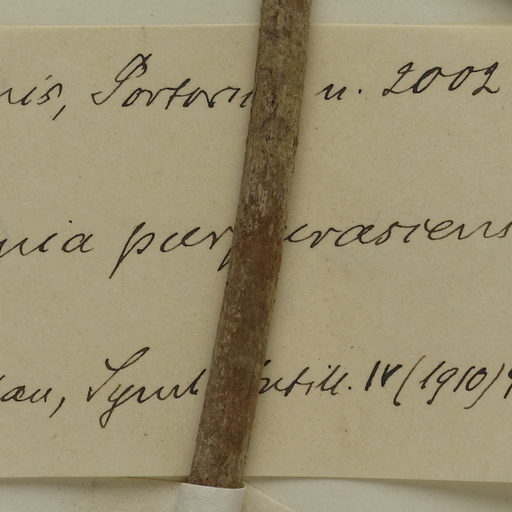 nis, Portoric n. 2002
nia purpurascens
lau, Symb. Antill. IV (1910)